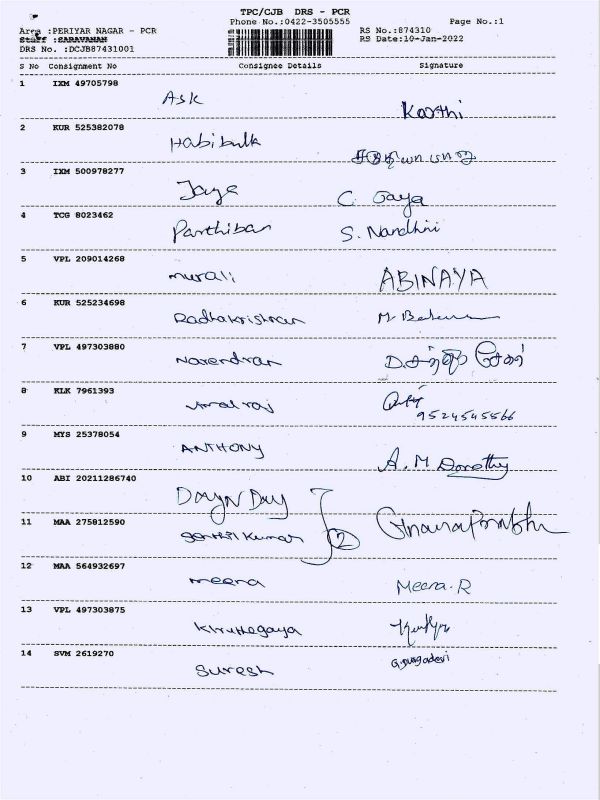 TPC/CJB DRS - PCR
Phone No.:0422-3505555
Page No.:1
Area :PERIYAR NAGAR - PCR
RS No.:874310
Staff :SARAVANAN
RS Date:10-Jan-2022
DRS No. :DCJB87431001
S No Consignment No Consignee Details Signature
1 IXM 49705798 Ask Karthi
2 KUR 525382078 Habibulk
3 IXM 500978277 Jaya C. Jaya
4 TCG 8023462 Parthiban S. Nandhini
5 VPL 209014268 murali ABINAYA
6 KUR 525234698 Radhakrishnan M.
7 VPL 497303880 Narendran D.
8 KLK 7961393 vimal raj 9524545566
9 MYS 25378054 ANTHONY A. M Dorothy
10 ABI 20211286740 Day N Day
11 MAA 275812590 Senthil Kumar 2 Gnanaprabhu
12 MAA 564932697 meena Meena. R
13 VPL 497303875 Kiruthegaya
14 SVM 2619270 Suresh